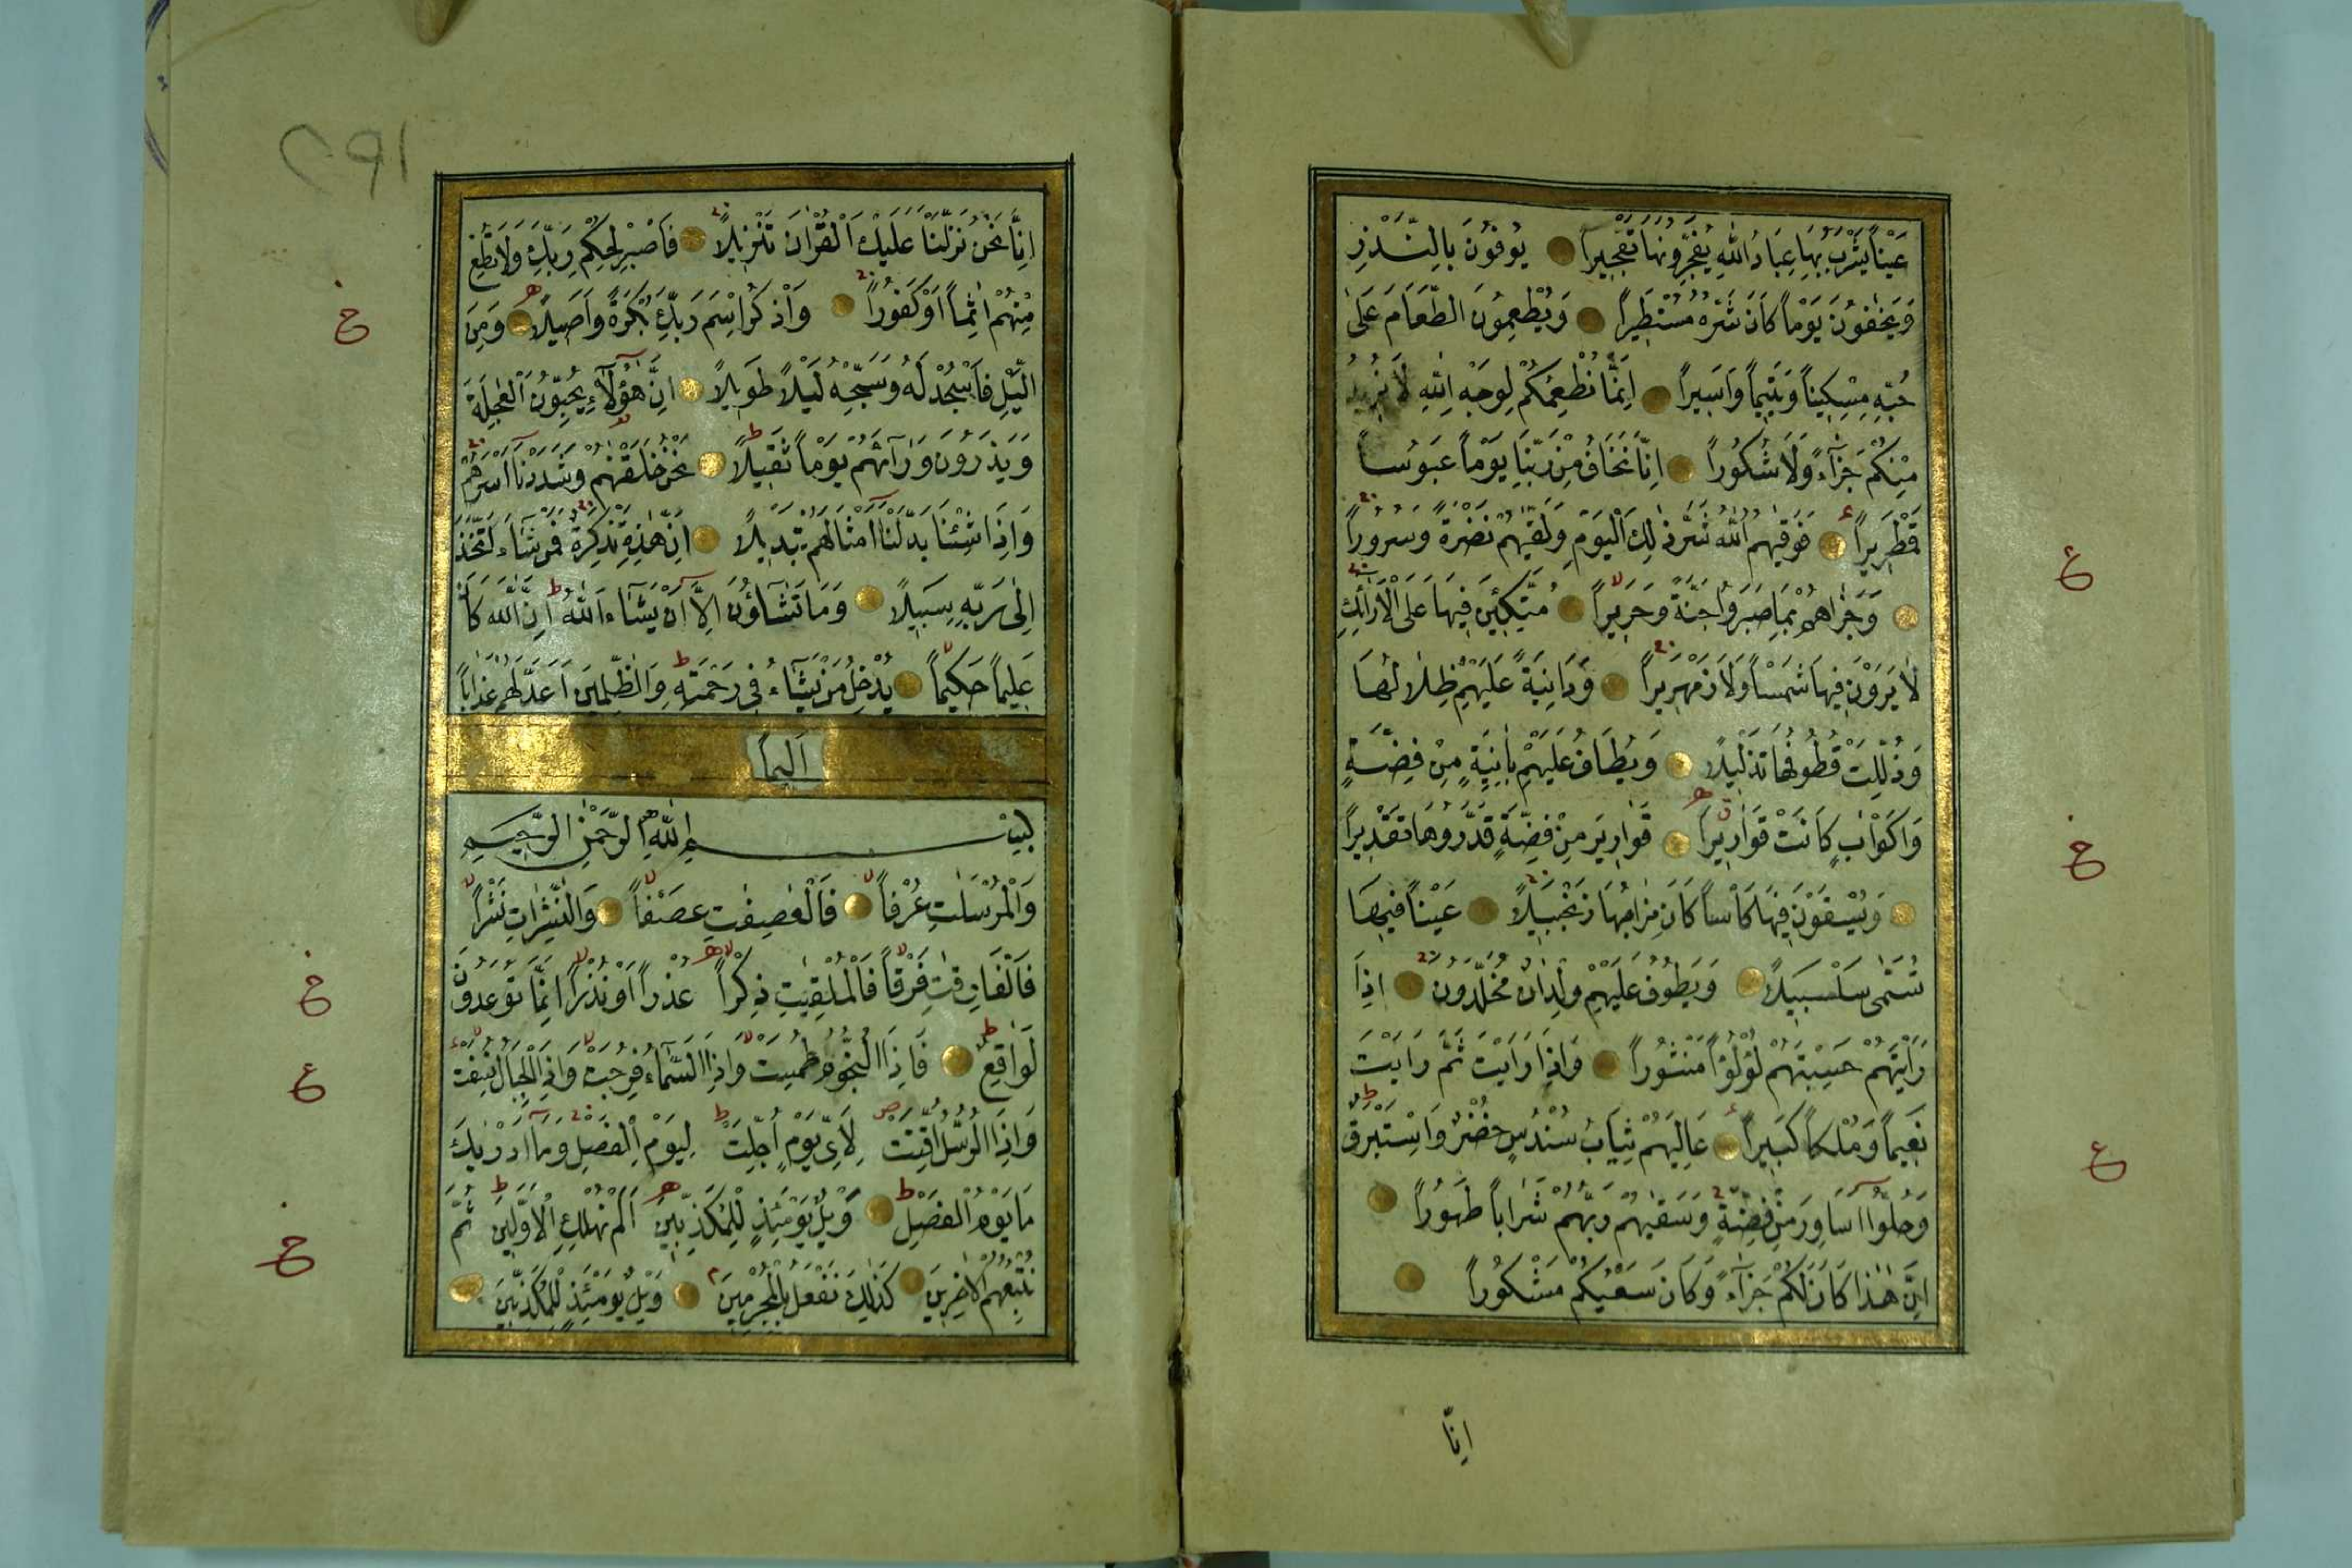 عَيْناً يَشْرَبُ بِهَا عِبَادُ اللّٰهِ يُفَجِّرُونَهَا تَفْجِيراً يُوفُونَ بِالنَّذْرِ
وَيَخَافُونَ يَوْماً كَانَ شَرُّهُ مُسْتَطِيراً وَيُطْعِمُونَ الطَّعَامَ عَلٰى
حُبِّهِ مِسْكِيناً وَيَتِيماً وَاَسِيراً اِنَّمَا نُطْعِمُكُمْ لِوَجْهِ اللّٰهِ لَا نُرِيدُ
مِنْكُمْ جَزَآءً وَلَا شُكُوراً اِنَّا نَخَافُ مِنْ رَبِّنَا يَوْماً عَبُوساً
قَمْطَرِيراً فَوَقٰيهُمُ اللّٰهُ شَرَّ ذٰلِكَ الْيَوْمِ وَلَقّٰيهُمْ نَضْرَةً وَسُرُوراً
وَجَزٰاهُمْ بِمَا صَبَرُوا جَنَّةً وَحَرِيراً مُتَّكِئِينَ فِيهَا عَلَى الْاَرَائِكِ
لَا يَرَوْنَ فِيهَا شَمْساً وَلَا زَمْهَرِيراً وَدَانِيَةً عَلَيْهِمْ ظِلَالُهَا
وَذُلِّلَتْ قُطُوفُهَا تَذْلِيلاً وَيُطَافُ عَلَيْهِمْ بِاٰنِيَةٍ مِنْ فِضَّةٍ
وَاَكْوَابٍ كَانَتْ قَوَارِيراً قَوَارِيرَ مِنْ فِضَّةٍ قَدَّرُوهَا تَقْدِيراً
وَيُسْقَوْنَ فِيهَا كَاْساً كَانَ مِزَاجُهَا زَنْجَبِيلاً عَيْناً فِيهَا
تُسَمّٰى سَلْسَبِيلاً وَيَطُوفُ عَلَيْهِمْ وِلْدَانٌ مُخَلَّدُونَ اِذَا
رَاَيْتَهُمْ حَسِبْتَهُمْ لُؤْلُؤاً مَنْثُوراً وَاِذَا رَاَيْتَ ثَمَّ رَاَيْتَ
نَعِيماً وَمُلْكاً كَبِيراً عَالِيَهُمْ ثِيَابُ سُنْدُسٍ خُضْرٌ وَاِسْتَبْرَقٌ
وَحُلُّوا اَسَاوِرَ مِنْ فِضَّةٍ وَسَقٰيهُمْ رَبُّهُمْ شَرَاباً طَهُوراً
اِنَّ هٰذَا كَانَ لَكُمْ جَزَآءً وَكَانَ سَعْيُكُمْ مَشْكُوراً
اِنَّا
اِنَّا نَحْنُ نَزَّلْنَا عَلَيْكَ الْقُرْاٰنَ تَنْزِيلاً فَاصْبِرْ لِحُكْمِ رَبِّكَ وَلَا تُطِعْ
مِنْهُمْ اٰثِماً اَوْ كَفُوراً وَاذْكُرِ اسْمَ رَبِّكَ بُكْرَةً وَاَصِيلاً وَمِنَ
الَّيْلِ فَاسْجُدْ لَهُ وَسَبِّحْهُ لَيْلاً طَوِيلاً اِنَّ هٰؤُلَآءِ يُحِبُّونَ الْعَاجِلَةَ
وَيَذَرُونَ وَرَآءَهُمْ يَوْماً ثَقِيلاً نَحْنُ خَلَقْنٰهُمْ وَشَدَدْنَا اَسْرَهُمْ
وَاِذَا شِئْنَا بَدَّلْنَا اَمْثَالَهُمْ تَبْدِيلاً اِنَّ هٰذِهِ تَذْكِرَةٌ فَمَنْ شَآءَ اتَّخَذَ
اِلٰى رَبِّهِ سَبِيلاً وَمَا تَشَآؤُنَ اِلَّا اَنْ يَشَآءَ اللّٰهُ اِنَّ اللّٰهَ كَانَ
عَلِيماً حَكِيماً يُدْخِلُ مَنْ يَشَآءُ فِي رَحْمَتِهِ وَالظّٰلِمِينَ اَعَدَّ لَهُمْ عَذَاباً
اَلِيماً
بِسْمِ اللّٰهِ الرَّحْمٰنِ الرَّحِيمِ
وَالْمُرْسَلٰتِ عُرْفاً فَالْعٰصِفٰتِ عَصْفاً وَالنّٰشِرٰتِ نَشْراً
فَالْفَارِقٰتِ فَرْقاً فَالْمُلْقِيٰتِ ذِكْراً عُذْراً اَوْ نُذْراً اِنَّمَا تُوعَدُونَ
لَوَاقِعٌ فَاِذَا النُّجُومُ طُمِسَتْ وَاِذَا السَّمَآءُ فُرِجَتْ وَاِذَا الْجِبَالُ نُسِفَتْ
وَاِذَا الرُّسُلُ اُقِّتَتْ لِاَيِّ يَوْمٍ اُجِّلَتْ لِيَوْمِ الْفَصْلِ وَمَا اَدْرٰيكَ
مَا يَوْمُ الْفَصْلِ وَيْلٌ يَوْمَئِذٍ لِلْمُكَذِّبِينَ اَلَمْ نُهْلِكِ الْاَوَّلِينَ ثُمَّ
نُتْبِعُهُمُ الْاٰخِرِينَ كَذٰلِكَ نَفْعَلُ بِالْمُجْرِمِينَ وَيْلٌ يَوْمَئِذٍ لِلْمُكَذِّبِينَ